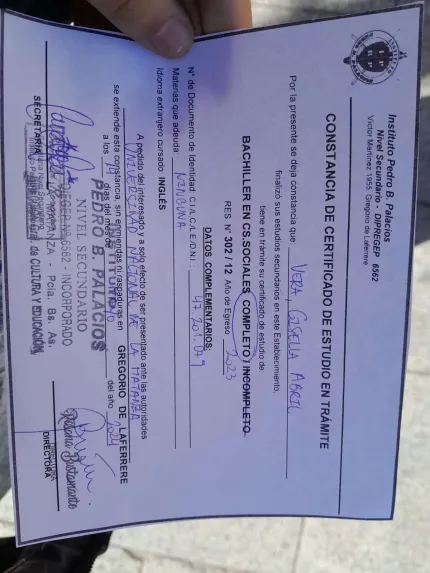 Instituto Pedro B. Palacios
Nivel Secundario - DIPREGEP 6562
Victor Martinez 1955 Gregorio de Laferrere
CONSTANCIA DE CERTIFICADO DE ESTUDIO EN TRÁMITE
Por la presente se deja constancia que VERA, GISELLA ABRIL
finalizó sus estudios secundarios en este Establecimiento,
tiene en trámite su certificado de estudio de
BACHILLER EN CS.SOCIALES COMPLETO / INCOMPLETO
RES Nº 302 / 12 Año de Egreso 2023
DATOS COMPLEMENTARIOS:
Nº de Documento de Identidad C.I./L.C./L.E./D.N.I.: 47.201.079
Materias que adeuda NINGUNA
Idioma extranjero cursado INGLÉS
A pedido del interesado y a solo efecto de ser presentado ante las autoridades
UNIVERSIDAD NACIONAL DE LA MATANZA
se extiende esta constancia, sin enmiendas ni raspaduras en GREGORIO DE LAFERRERE
a los 14 días del mes de del año 2024
PEDRO B. PALACIOS
NIVEL SECUNDARIO
DIPREGEP Nº 6562 - INCORPORADO
Pcia. Bs. As.
DE CULTURA Y EDUCACIÓN
SECRETARIA
Bustamante
DIRECTORA